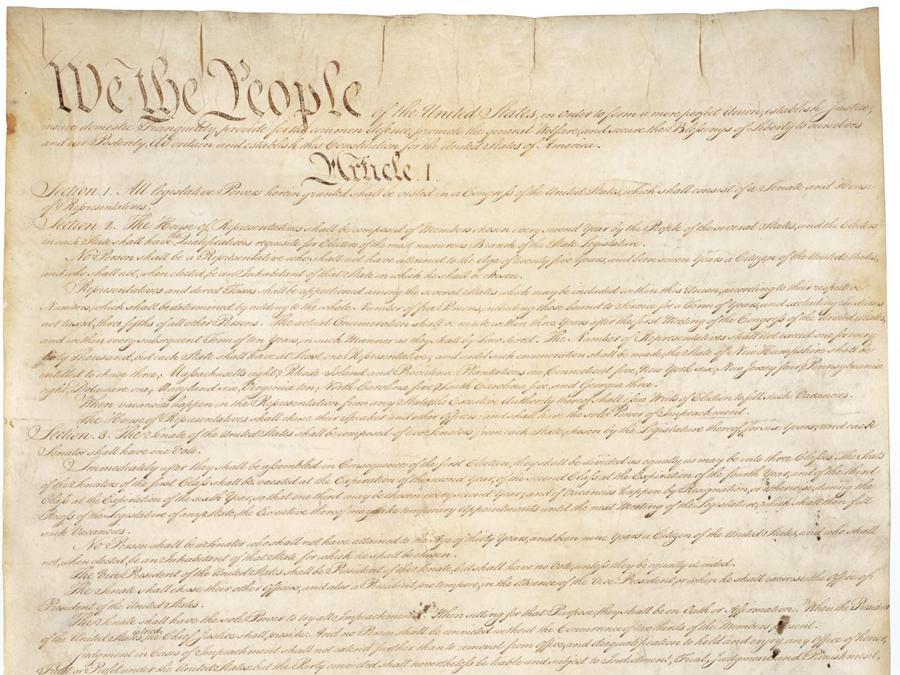 We the People of the United States, in Order to form a more perfect Union, establish Justice,
insure domestic Tranquility, provide for the common defence, promote the general Welfare, and secure the Blessings of Liberty to ourselves
and our Posterity, do ordain and establish this Constitution for the United States of America.
Article. I.
Section. 1. All legislative Powers herein granted shall be vested in a Congress of the United States, which shall consist of a Senate and House
of Representatives.
Section. 2. The House of Representatives shall be composed of Members chosen every second Year by the People of the several States, and the Electors
in each State shall have the Qualifications requisite for Electors of the most numerous Branch of the State Legislature.
No Person shall be a Representative who shall not have attained to the Age of twenty five Years, and been seven Years a Citizen of the United States,
and who shall not, when elected, be an Inhabitant of that State in which he shall be chosen.
Representatives and direct Taxes shall be apportioned among the several States which may be included within this Union, according to their respective
Numbers, which shall be determined by adding to the whole Number of free Persons, including those bound to Service for a Term of Years, and excluding Indians
not taxed, three fifths of all other Persons. The actual Enumeration shall be made within three Years after the first Meeting of the Congress of the United States,
and within every subsequent Term of ten Years, in such Manner as they shall by Law direct. The Number of Representatives shall not exceed one for every
thirty Thousand, but each State shall have at Least one Representative; and until such enumeration shall be made, the State of New Hampshire shall be
entitled to chuse three, Massachusetts eight, Rhode Island and Providence Plantations one, Connecticut five, New York six, New Jersey four, Pennsylvania
eight, Delaware one, Maryland six, Virginia ten, North Carolina five, South Carolina five, and Georgia three.
When vacancies happen in the Representation from any State, the Executive Authority thereof shall issue Writs of Election to fill such Vacancies.
The House of Representatives shall chuse their Speaker and other Officers; and shall have the sole Power of Impeachment.
Section. 3. The Senate of the United States shall be composed of two Senators from each State, chosen by the Legislature thereof, for six Years; and each
Senator shall have one Vote.
Immediately after they shall be assembled in Consequence of the first Election, they shall be divided as equally as may be into three Classes. The Seats
of the Senators of the first Class shall be vacated at the Expiration of the second Year, of the second Class at the Expiration of the fourth Year, and of the third
Class at the Expiration of the sixth Year, so that one third may be chosen every second Year; and if Vacancies happen by Resignation, or otherwise, during the
Recess of the Legislature of any State, the Executive thereof may make temporary Appointments until the next Meeting of the Legislature, which shall then fill
such Vacancies.
No Person shall be a Senator who shall not have attained to the Age of thirty Years, and been nine Years a Citizen of the United States, and who shall
not, when elected, be an Inhabitant of that State for which he shall be chosen.
The Vice President of the United States shall be President of the Senate, but shall have no Vote, unless they be equally divided.
The Senate shall chuse their other Officers, and also a President pro tempore, in the Absence of the Vice President, or when he shall exercise the Office of
President of the United States.
The Senate shall have the sole Power to try all Impeachments. When sitting for that Purpose, they shall be on Oath or Affirmation. When the President
of the United States is tried, the Chief Justice shall preside: And no Person shall be convicted without the Concurrence of two thirds of the Members present.
Judgment in Cases of Impeachment shall not extend further than to removal from Office, and disqualification to hold and enjoy any Office of honor,
Trust or Profit under the United States: but the Party convicted shall nevertheless be liable and subject to Indictment, Trial, Judgment and Punishment,